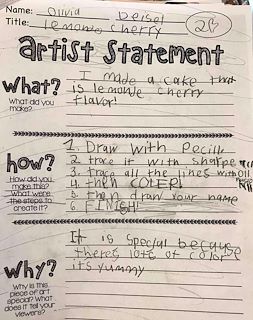 Name: Olivia Deisel
Title: lemonwe cherry
2B
artist Statement
What?
What did you make?
I made a cake that
is lemonwe cherry
flavor!
how?
How did you
make this?
What were
the steps to
create it?
1. Draw with Pecill
2. trace it with sharpe
3. trace all the lines with Oil
4. then COLER!
5. then draw your name
6. FINISH
Why?
Why is this
piece of art
special? What
does it tell your
viewers?
It is special because
theres lots of colors
its yummy